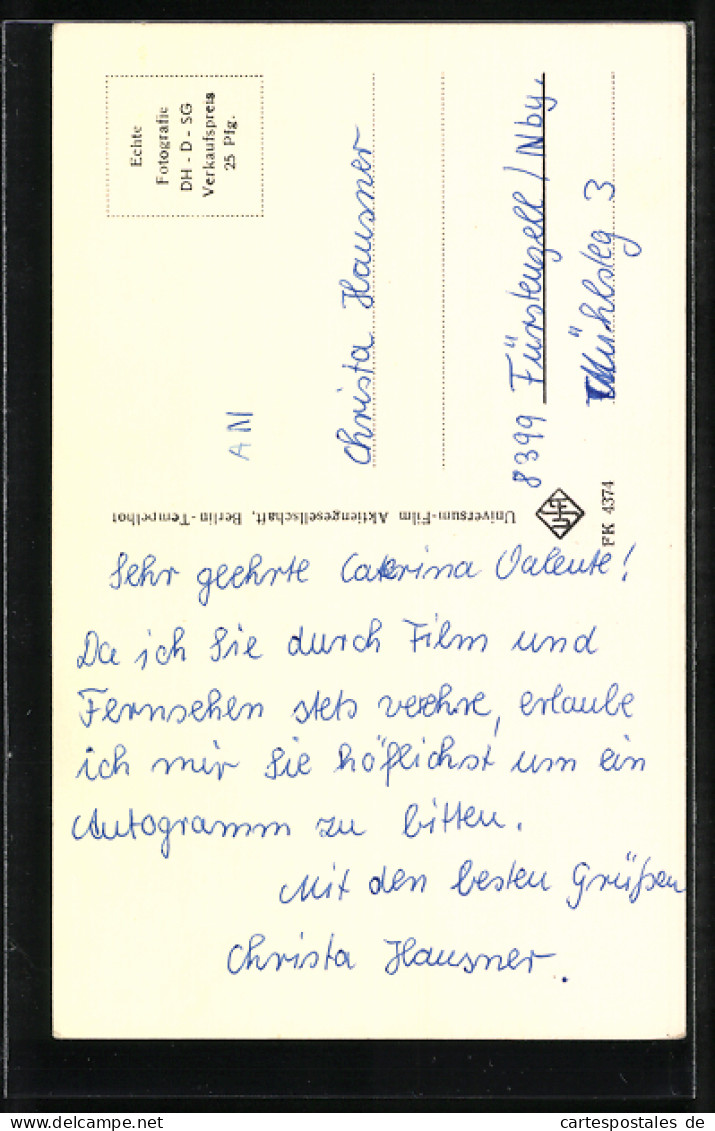 Echte
Fotografie
DH - D - SG
Verkaufspreis
25 Pfg.
Christa Hausner
8399 Fürstenzell / Nby.
Mühlsteg 3
AM
Universum-Film Aktiengesellschaft, Berlin-Tempelhof
FK 4374
Sehr geehrte Caterina Valente!
Da ich Sie durch Film und
Fernsehen stets verehre, erlaube
ich mir Sie höflichst um ein
Autogramm zu bitten.
Mit den besten Grüßen
Christa Hausner.
cartespostales de